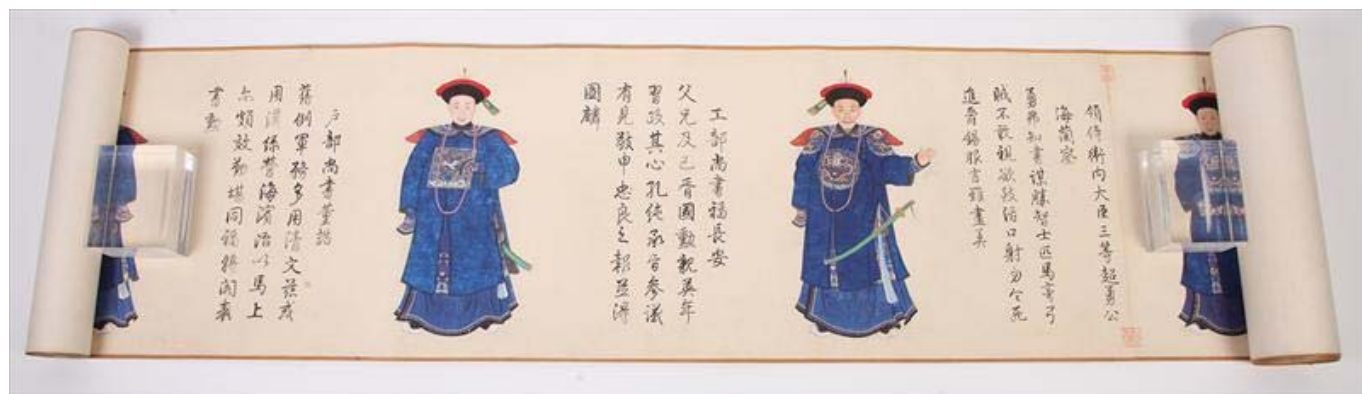 領侍衛內大臣三等超勇公
海蘭察
勇弗知書謀勝智士匹馬彎弓
賊不敢視欲活口射勿令死
進晉錫服畫美
工部尚書福長安
父兄及己晉國勳親英年
習政其心孔純承旨參議
有見敬申忠良之報並得
圖麟
戶部尚書董誥
舊例軍務多用清文茲或
用漢係營海濱治以馬上
亦頗效勤堪同福閣嘉
書勳